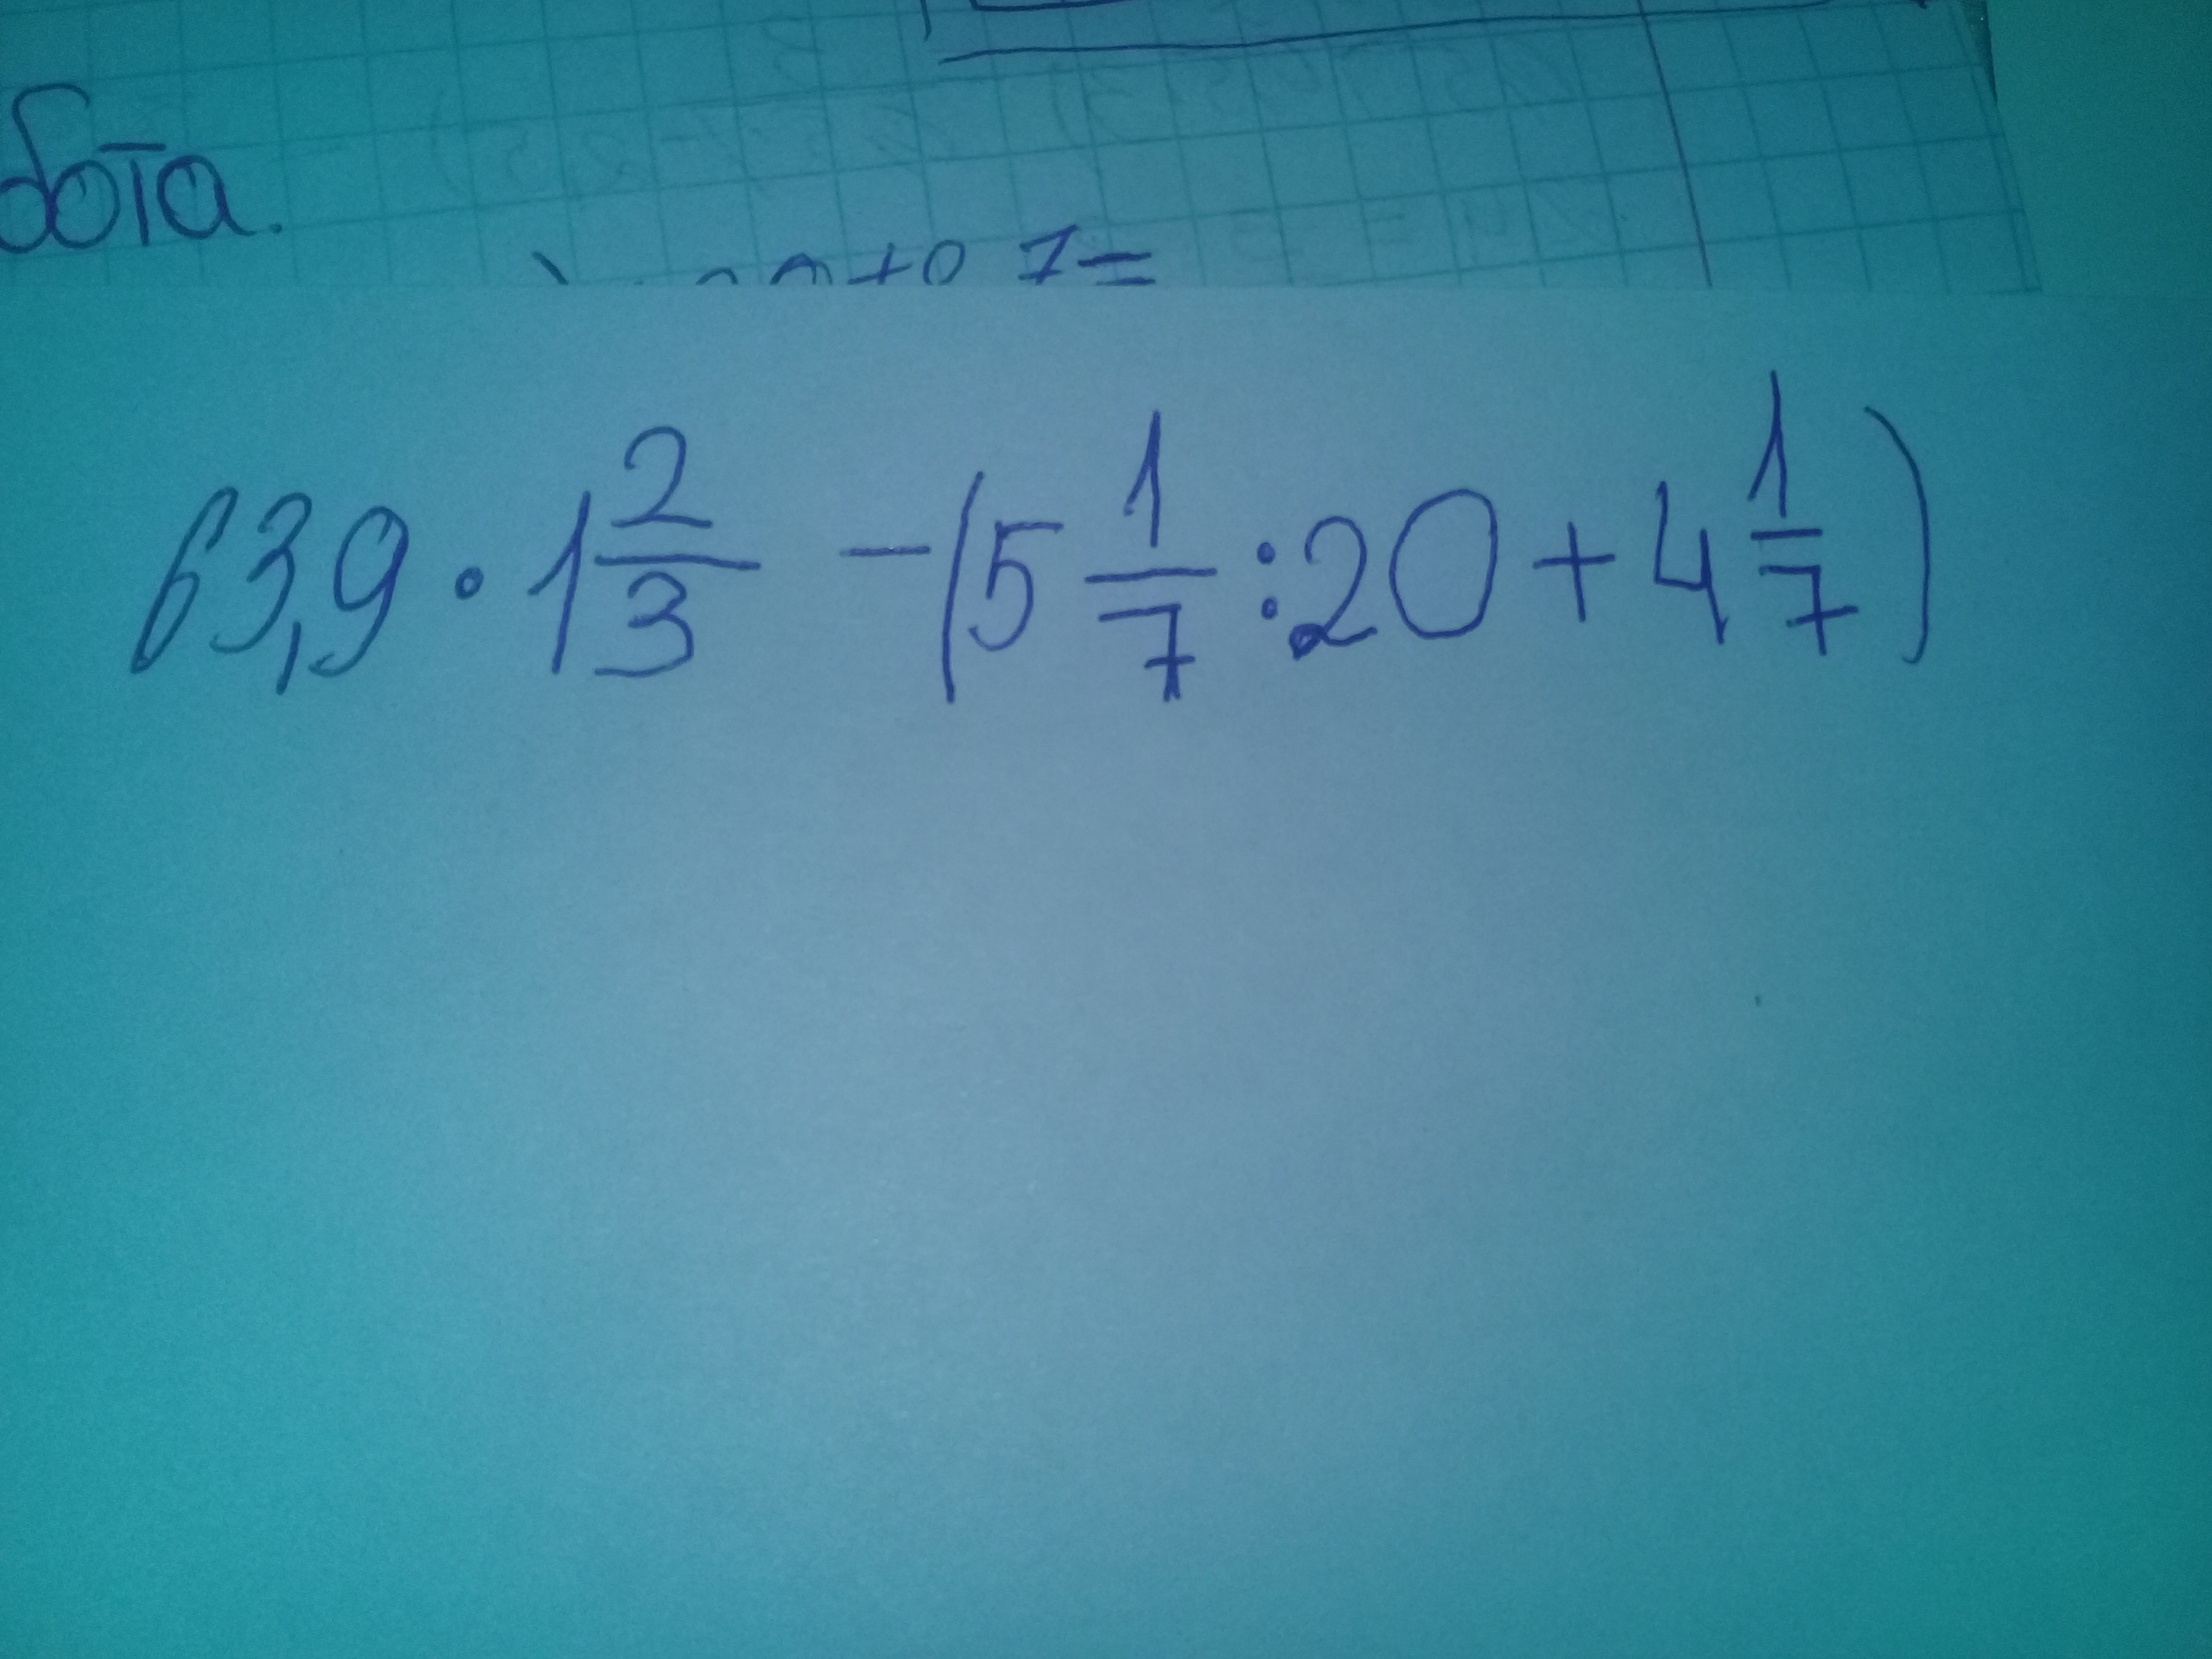 бота.
+0 7=
63,9 · 1 2/3 - (5 1/7 : 20 + 4 1/7)